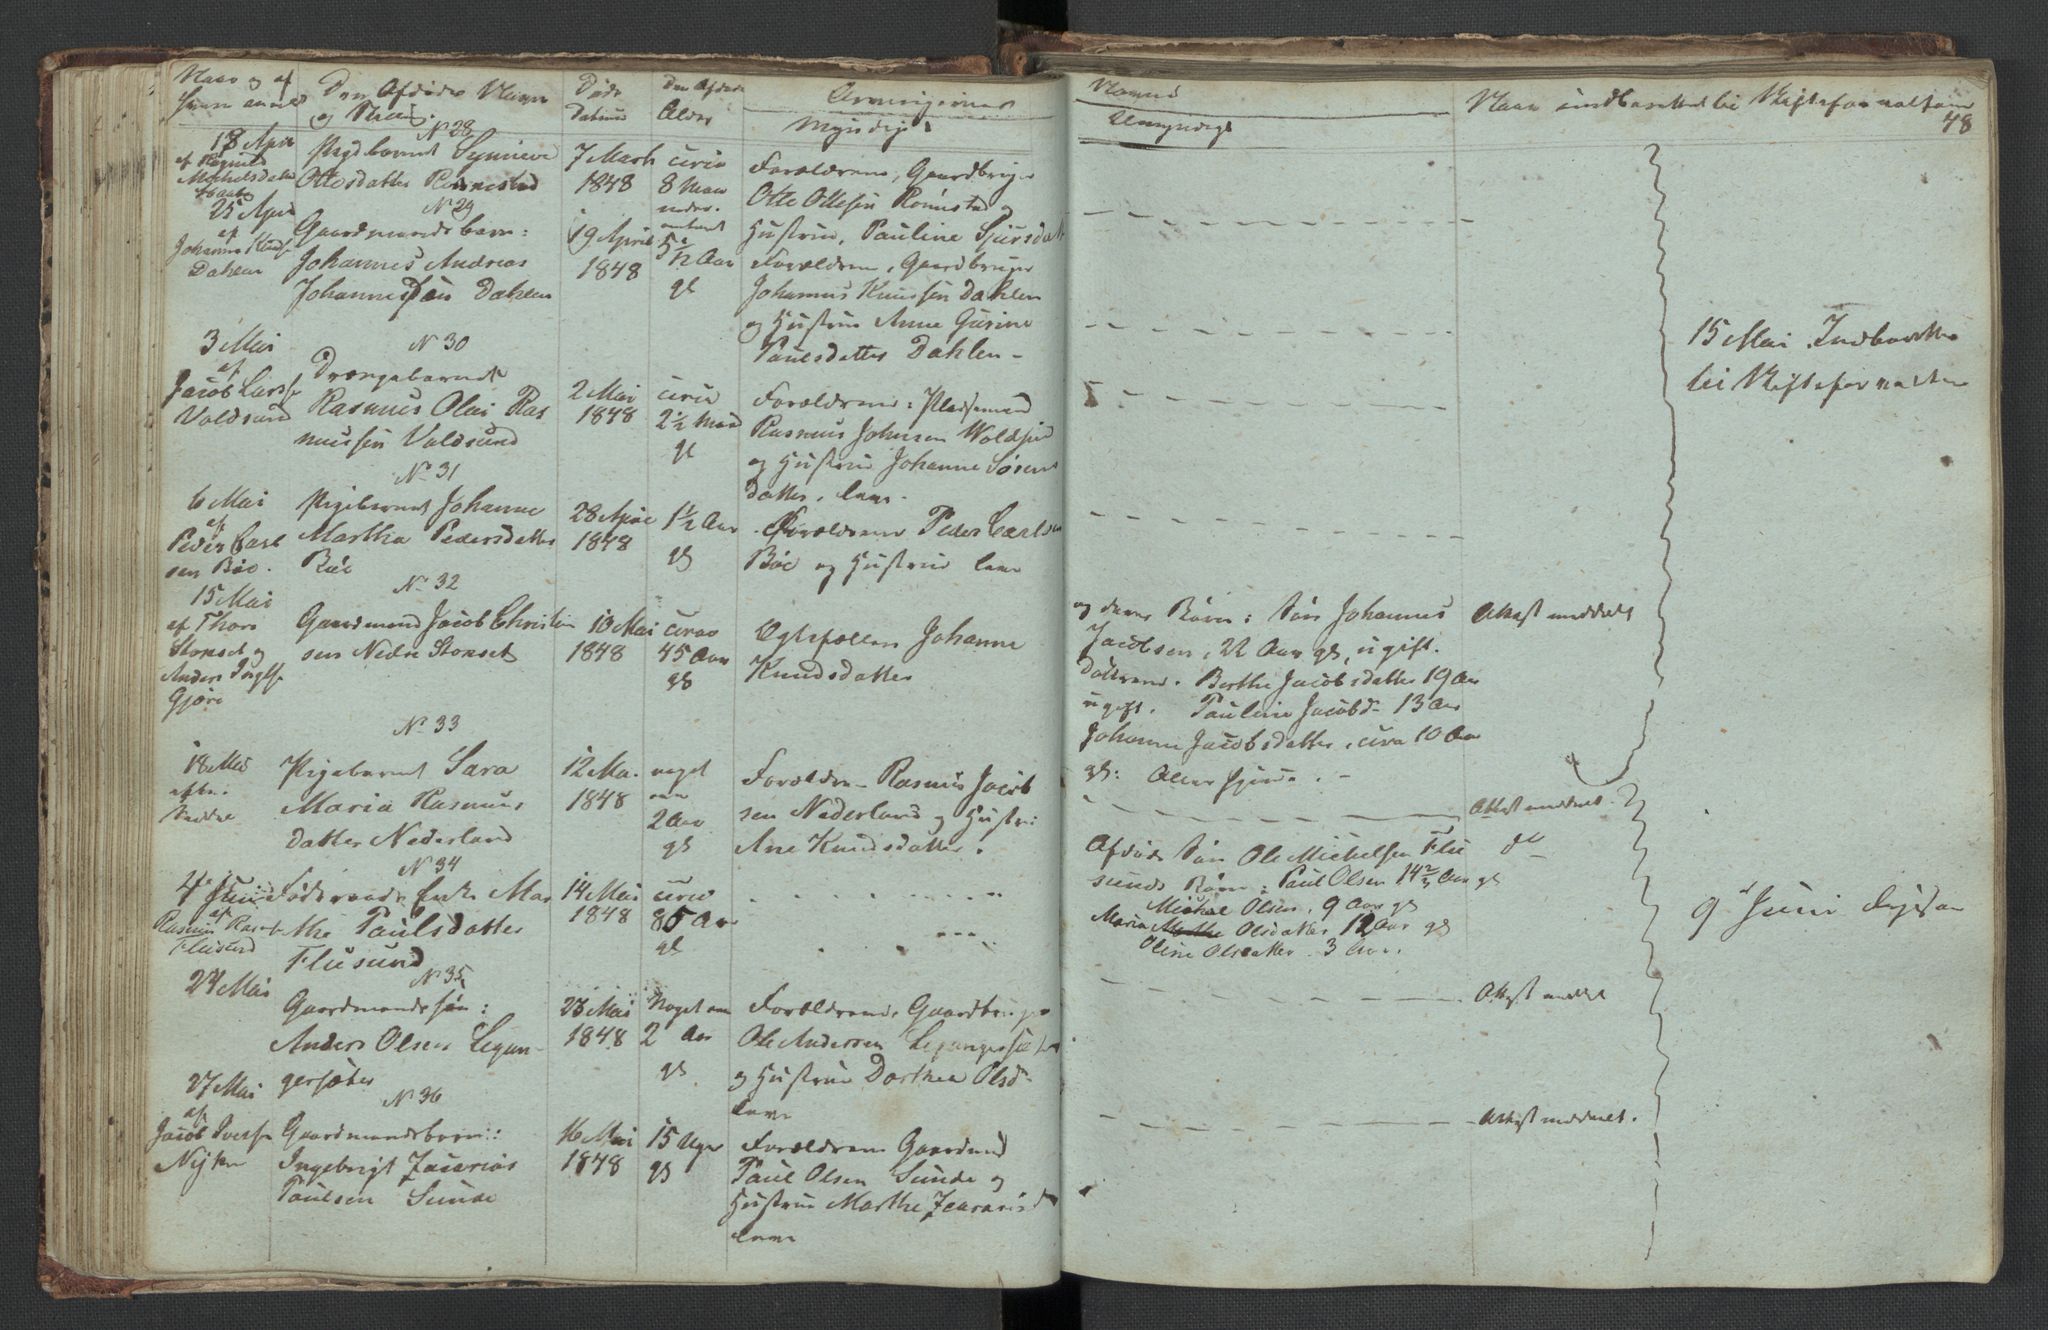 Naar og af
hvem anmeldt
Den Afdødes Navn
og Stand.
Døds
Datum
Den Afdødes
Alder
Arvingernes
Myndige
Navne
Umyndige
Naar indberettet til Skifteforvalteren
48
N 28
18 April
af
Michelsdatter
Pigebarnet Synneve
Ottesdatter Rønnestad
7 Marts
1848
circa
8 Maan
Forældrene, Gaardbruger
Otte Ottesen Rønnestad og
Hustrue, Pauline Sjursdatter
N 29
25 April
af
Johannes Knuds.
Dahlen
Gaardmandsbarn:
Johannes Andreas
Johannessen Dahlen
19 April
1848
omtrent
5½ Aar
gl
Forældrene, Gaardbruger
Johannes Knudsen Dahlen
og Hustrue Anne Gurine
Paulsdatter Dahlen -
15 Mai Indberettet
til Skifteforvalteren
N 30
3 Mai
af
Jacob Larss.
Voldsund
Drengebarnet
Rasmus Olai Ras
mussen Voldsund
2 Mai
1848
circa
2½ Maan
gl
Forældrene: Pladsmand
Rasmus Johnsen Woldsund
og Hustrue Johanne Sørens
datter, leve.
N 31
6 Mai
af
Peder Carl
sen Bøe.
Pigebarnet Johanne
Martha Pedersdatter
Bøe
28 April
1848
1½ Aar
gl
Forældrene Peder Carlsen
Bøe og Hustrue leve
N 32
15 Mai
af Thore
Stonset og
Anders Ingebr.
Gjøre
Gaardmand Jacob Christen
sen Nedre Stonset
10 Mai
1848
circa
45 Aar
gl
Ægtefællen Johanne
Knudsdatter
og deres Børn: Søn Johannes
Jacobsen, 22 Aar gl, ugift.
Døttrene. Berthe Jacobsdatter 19 Aar
ugift. Pauline Jacobsd 13 Aar
Johanne Jacobsdatter, circa 10 Aar
gl:
Attest meddelt
N 33
18 Mai
Pigebarnet Sara
Maria Rasmus
datter Nederland
12 Ma.
1848
noget
over
2 Aar
gl
Forældre - Rasmus Jacob
sen Nederland og Hustru:
Ane Knudsdatter.
Attest meddelt.
N 34
4 Juni
af
Rasmus Rasm.
Fluesund
Føderaads Enke Mar
the Paulsdatter
Fluesund
14 Mai
1848
circa
85 Aar
gl
Afdøde Søn Ole Michelsen Flu
sunds Børn: Paul Olsen 14 ½ Aar gl
Michel Olsen, 9 Aar gl
Maria Olsdatter 12 Aar gl
Oline Olsdatter 3 Aar.
do
9 Juni
N 35
27 Mai
Gaardmandssøn:
Anders Olsen Legan-
gersæter
23 Mai
1848
Noget over
2 Aar
gl
Forældrene, Gaardbruger
Ole Andersen Legangersæter
og Hustrue Dorthea Olsd-
leve
Attest meddelt
N 36
27 Mai
af
Jacob Iverss.
Gaardmandsbarn:
Ingebrigt Zacarias
Paulsen Sunde
16 Mai
1848
15 Uger
gl
Forældrene Gaardmd
Paul Olsen Sunde og
Hustrue Marthe Zacariasd
leve
Attest meddelt.